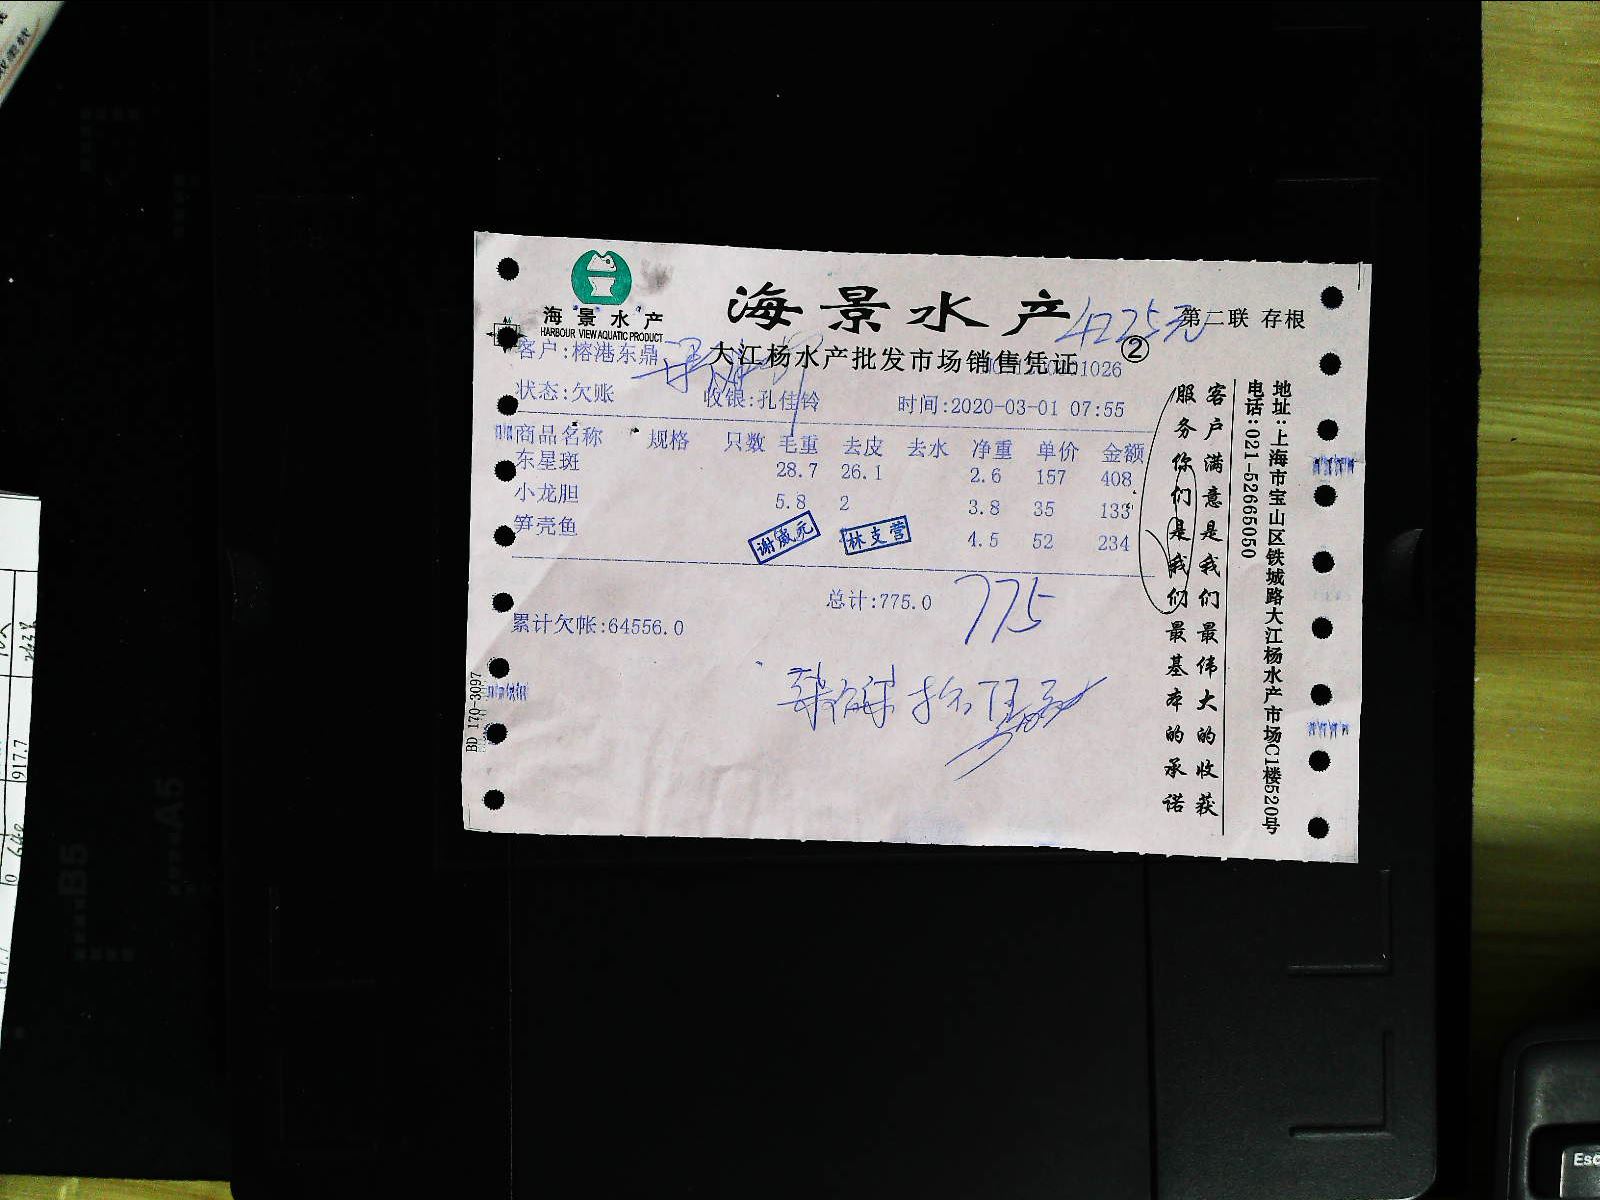 海景水产
HARBOUR VIEW AQUATIC PRODUCT
海景水产
第二联 存根
大江杨水产批发市场销售凭证 ②
客户:榕港东鼎
状态:欠账 收银:孔佳铃 时间:2020-03-01 07:55
商品名称 规格 只数 毛重 去皮 去水 净重 单价 金额
东星斑 28.7 26.1 2.6 157 408
小龙胆 5.8 2 3.8 35 133
笋壳鱼 4.5 52 234
林支营
总计:775.0
775
累计欠帐:64556.0
BD 170-3097
客户满意是我们最伟大的收获
服务你们是我们最基本的承诺
地址:上海市宝山区铁城路大江杨水产市场C1楼520号
电话:021-52665050
917.7
B5
A5
Esc